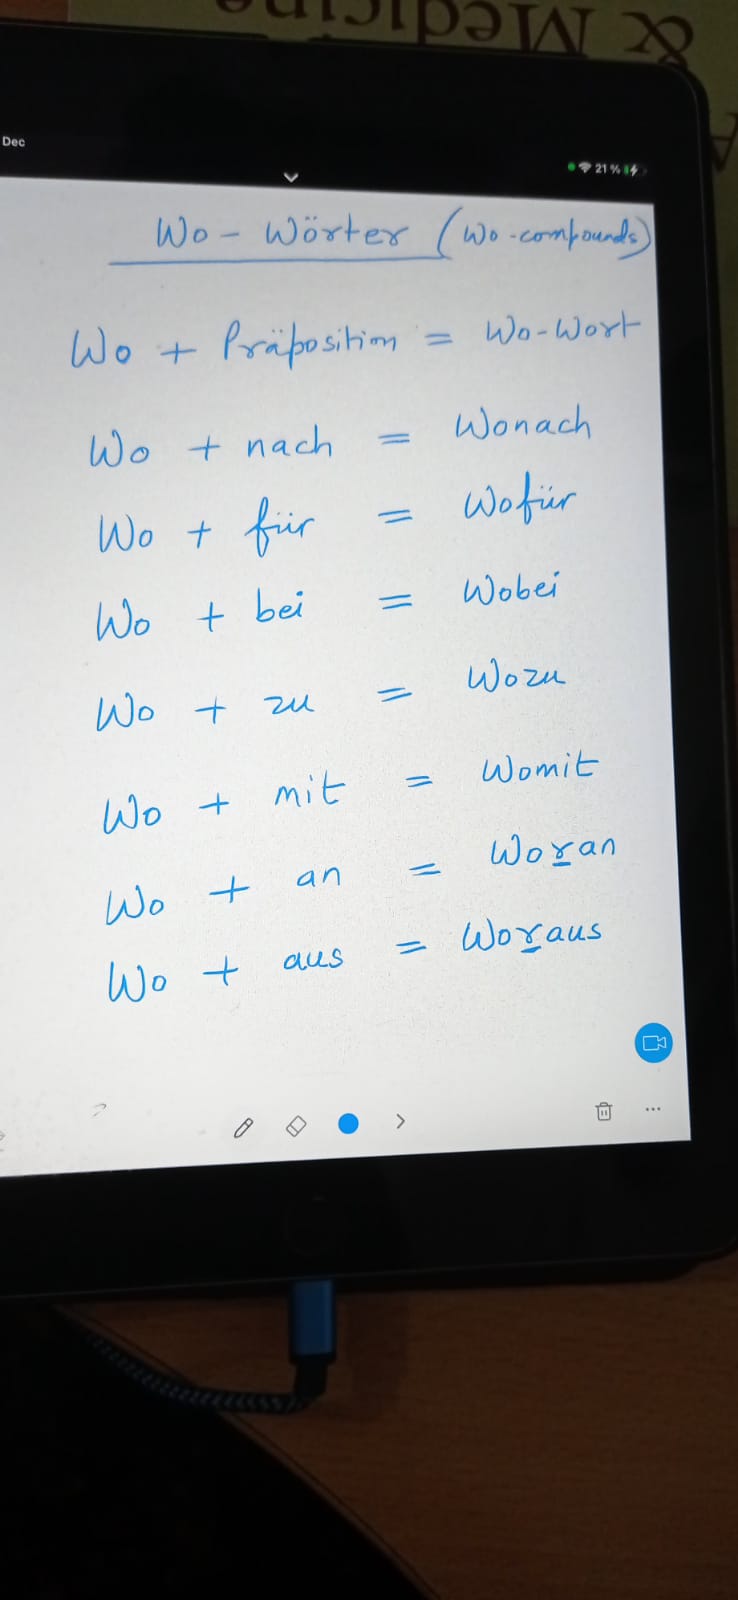 & Medicine
Dec
21 %
Wo - Wörter (Wo -compounds)
Wo + Präposition = Wo-Wort
Wo + nach = Wonach
Wo + für = Wofür
Wo + bei = Wobei
Wo + zu = Wozu
Wo + mit = Womit
Wo + an = Woran
Wo + aus = Woraus